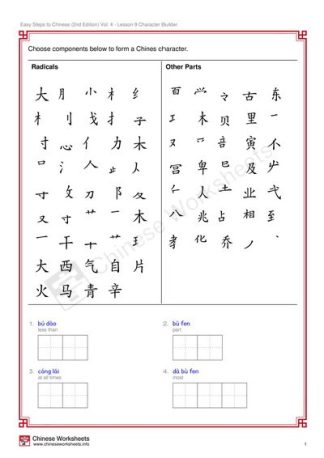 Easy Steps to Chinese (2nd Edition) Vol. 4 - Lesson 9 Character Builder
Choose components below to form a Chines character.
Radicals
大 月 小 木 纟
礻 刂 戈 扌 子
寸 心 亻 力 木
口 氵 人
寸 攵 刀 阝
又 寸 艹 一 木
一 干 十 艹 王
大 西 气 自 片
火 马 青 辛
Other Parts
古 东
工 木 贝 里 一
又 音 寅 不
宫 卑 巳 及
人 土 业
八 兆 占 相 至
化 乔
Chinese Worksheets
1. bú dào
less than
2. bù fen
part
3. cóng lái
at all times
4. dà bù fen
most
Chinese Worksheets
www.chineseworksheets.info
1